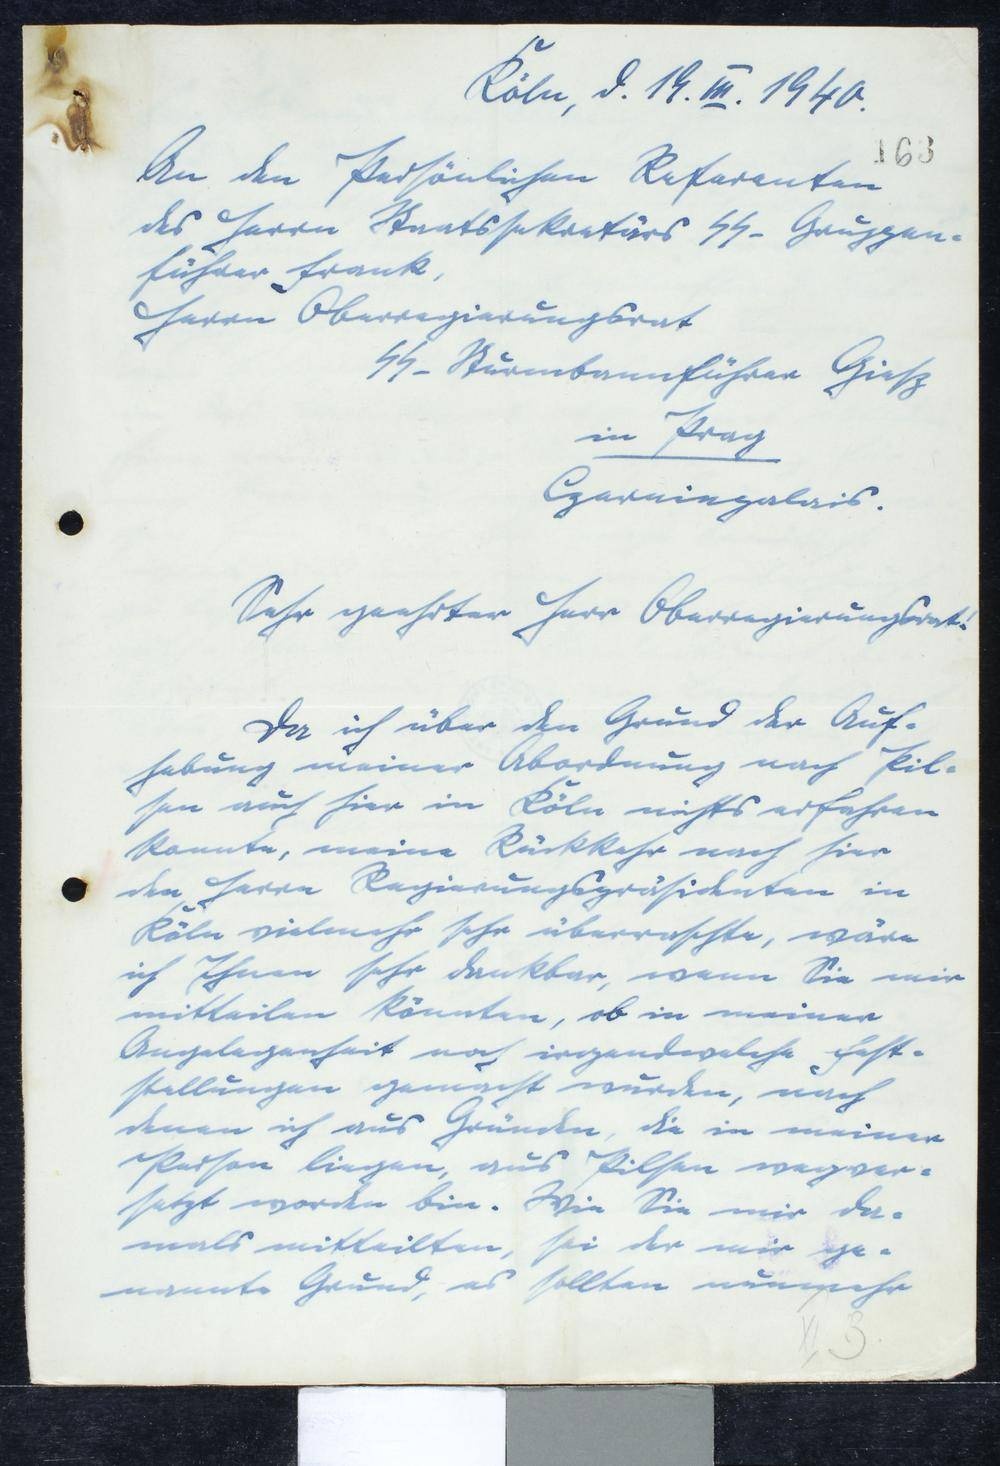 Köln, d. 19. III. 1940.
163
An den Persönlichen Referenten
des Herrn Staatssekretärs SS-Gruppen-
führer Frank,
Herrn Oberregierungsrat
SS-Sturmbannführer Giesz
in Prag
Czerninpalais.
Sehr geehrter Herr Oberregierungsrat!
Da ich über den Grund der Auf-
hebung meiner Abordnung nach Pil-
sen auch hier in Köln nichts erfahren
konnte, meine Rückkehr nach hier
den Herrn Regierungspräsidenten in
Köln vielmehr sehr überraschte, wäre
ich Ihnen sehr dankbar, wenn Sie mir
mitteilen könnten, ob in meiner
Angelegenheit noch irgendwelche Fest-
stellungen gemacht wurden, nach
denen ich aus Gründen, die in meiner
Person liegen, aus Pilsen wegver-
setzt worden bin. Wie Sie mir da-
mals mitteilten, sei der mir ge-
nannte Grund, es sollten nunmehr